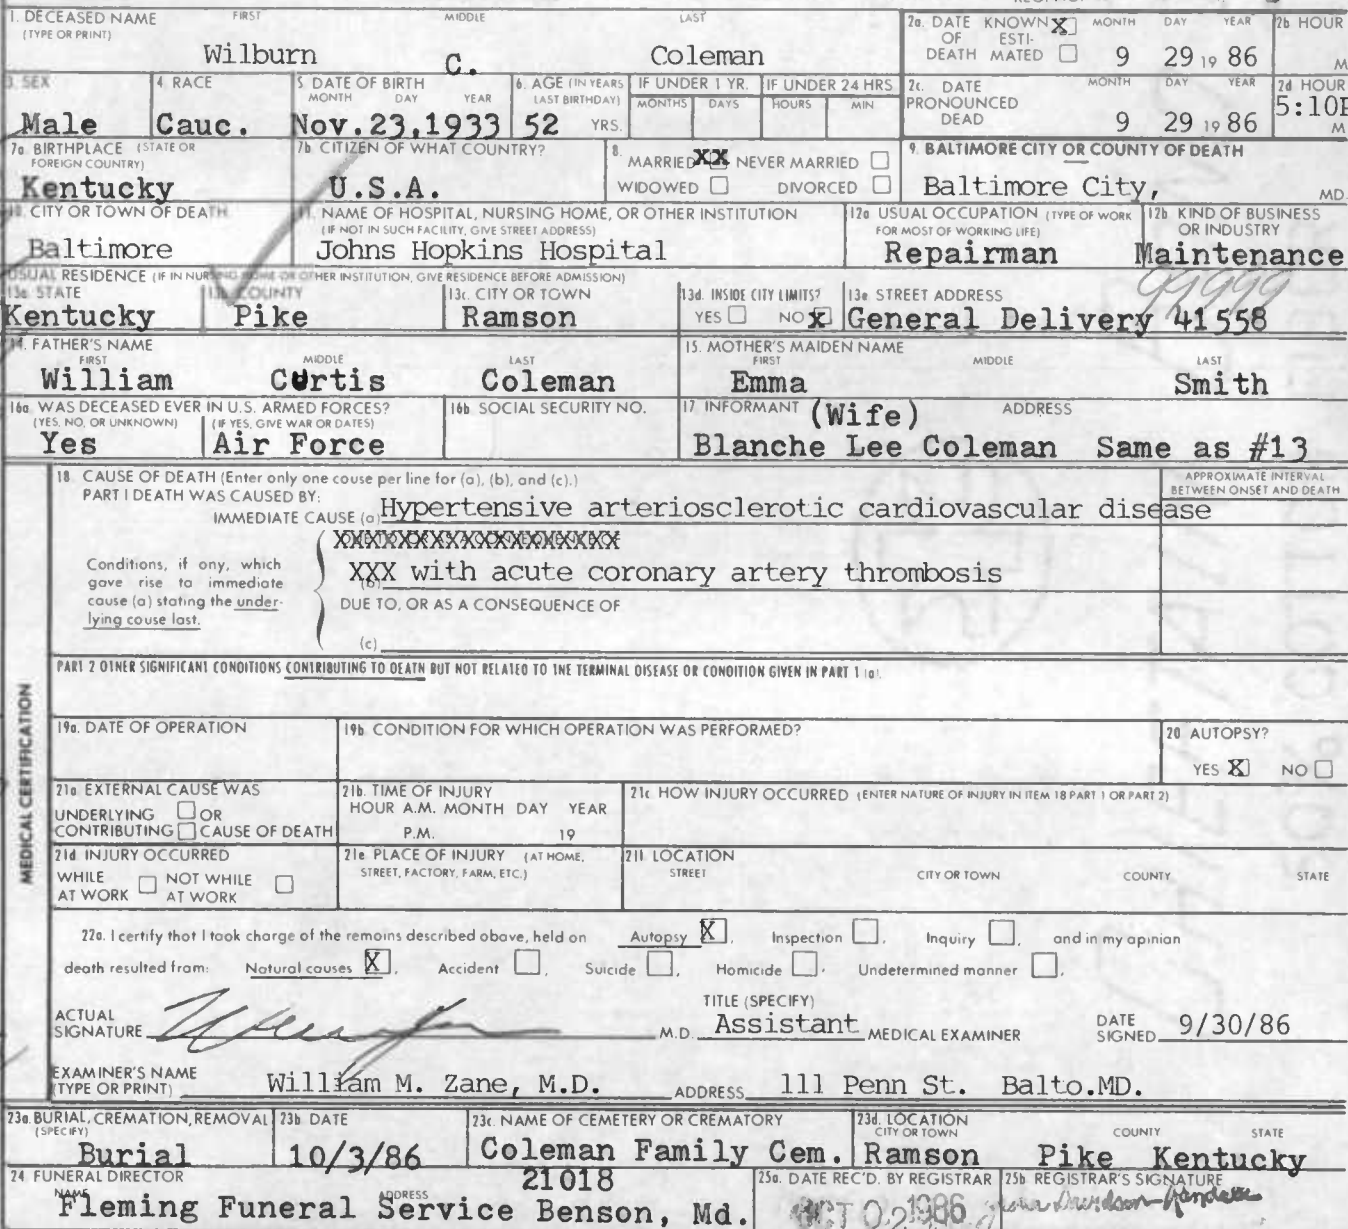 1. DECEASED NAME FIRST MIDDLE LAST
(TYPE OR PRINT)
Wilburn C. Coleman
2a. DATE KNOWN X MONTH DAY YEAR
OF ESTI-
DEATH MATED
9 29 19 86
2b HOUR
M
3. SEX
Male
4 RACE
Cauc.
5 DATE OF BIRTH
MONTH DAY YEAR
Nov.23,1933
6. AGE (IN YEARS
LAST BIRTHDAY)
52 YRS.
IF UNDER 1 YR.
MONTHS DAYS
IF UNDER 24 HRS
HOURS MIN
2c. DATE MONTH DAY YEAR
PRONOUNCED
DEAD
9 29 19 86
2d HOUR
5:10P
M
7a BIRTHPLACE (STATE OR
FOREIGN COUNTRY)
Kentucky
7b CITIZEN OF WHAT COUNTRY?
U.S.A.
8.
MARRIED XX NEVER MARRIED
WIDOWED DIVORCED
9. BALTIMORE CITY OR COUNTY OF DEATH
Baltimore City, MD.
10. CITY OR TOWN OF DEATH
Baltimore
11. NAME OF HOSPITAL, NURSING HOME, OR OTHER INSTITUTION
(IF NOT IN SUCH FACILITY, GIVE STREET ADDRESS)
Johns Hopkins Hospital
12a USUAL OCCUPATION (TYPE OF WORK
FOR MOST OF WORKING LIFE)
Repairman
12b. KIND OF BUSINESS
OR INDUSTRY
Maintenance
USUAL RESIDENCE (IF IN NURSING HOME OR OTHER INSTITUTION, GIVE RESIDENCE BEFORE ADMISSION)
13a. STATE
Kentucky
13b. COUNTY
Pike
13c. CITY OR TOWN
Ramson
13d. INSIDE CITY LIMITS?
YES NO X
13e STREET ADDRESS
99999
General Delivery 41558
14. FATHER'S NAME
FIRST MIDDLE LAST
William Curtis Coleman
15. MOTHER'S MAIDEN NAME
FIRST MIDDLE LAST
Emma Smith
16a WAS DECEASED EVER IN U.S. ARMED FORCES?
(YES, NO, OR UNKNOWN) (IF YES, GIVE WAR OR DATES)
Yes Air Force
16b SOCIAL SECURITY NO.
17 INFORMANT (Wife) ADDRESS
Blanche Lee Coleman Same as #13
MEDICAL CERTIFICATION
18 CAUSE OF DEATH (Enter only one couse per line for (a), (b), and (c).)
PART I DEATH WAS CAUSED BY:
APPROXIMATE INTERVAL
BETWEEN ONSET AND DEATH
IMMEDIATE CAUSE (a) Hypertensive arteriosclerotic cardiovascular disease
Conditions, if any, which
gave rise to immediate
cause (a) stating the under-
lying couse last.
XXX with acute coronary artery thrombosis
(b)
DUE TO, OR AS A CONSEQUENCE OF
(c)
PART 2 OTHER SIGNIFICANT CONDITIONS CONTRIBUTING TO DEATH BUT NOT RELATED TO THE TERMINAL DISEASE OR CONDITION GIVEN IN PART 1 (a).
19a. DATE OF OPERATION
19b CONDITION FOR WHICH OPERATION WAS PERFORMED?
20 AUTOPSY?
YES X NO
21a EXTERNAL CAUSE WAS
UNDERLYING OR
CONTRIBUTING CAUSE OF DEATH
21b. TIME OF INJURY
HOUR A.M. MONTH DAY YEAR
P.M. 19
21c HOW INJURY OCCURRED (ENTER NATURE OF INJURY IN ITEM 18 PART 1 OR PART 2)
21d INJURY OCCURRED
WHILE NOT WHILE
AT WORK AT WORK
21e PLACE OF INJURY (AT HOME,
STREET, FACTORY, FARM, ETC.)
21f LOCATION
STREET CITY OR TOWN COUNTY STATE
22a. I certify that I took charge of the remains described above, held on Autopsy X, Inspection , Inquiry , and in my opinion
death resulted from: Natural causes X, Accident , Suicide , Homicide , Undetermined manner .
ACTUAL
SIGNATURE M.D.
TITLE (SPECIFY)
Assistant MEDICAL EXAMINER
DATE
SIGNED 9/30/86
EXAMINER'S NAME
(TYPE OR PRINT) William M. Zane, M.D. ADDRESS 111 Penn St. Balto.MD.
23a. BURIAL, CREMATION, REMOVAL
(SPECIFY)
Burial
23b DATE
10/3/86
23c. NAME OF CEMETERY OR CREMATORY
Coleman Family Cem.
23d. LOCATION
CITY OR TOWN COUNTY STATE
Ramson Pike Kentucky
24 FUNERAL DIRECTOR
NAME ADDRESS 21018
Fleming Funeral Service Benson, Md.
25a. DATE REC'D. BY REGISTRAR
OCT 02 1986
25b REGISTRAR'S SIGNATURE